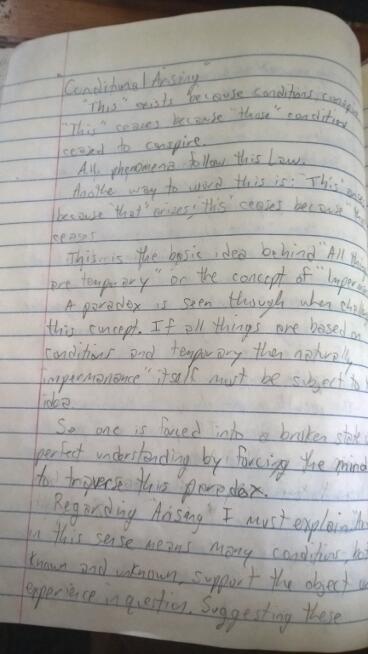 "Conditional Arising"
"This" exists because conditions conspire
"This" ceases because "those" conditions
ceased to conspire.
All phenomena follow this Law.
Anothe way to word this is: "This" arises
because "that" arises; "this" ceases because
ceases
This is the basic idea behind "All things
are "temporary" or the concept of
A paradox is seen through when
this concept. If all things are based on
conditions and temporary then naturally
"impermanence" itself must be subject to
idea.
So one is forced into a broken state
perfect understanding by forcing the mind
to traverse this paradox.
Regarding "Arising" I must explain
in this sense means many conditions, both
known and unknown, support the object
experience in question. Suggesting these